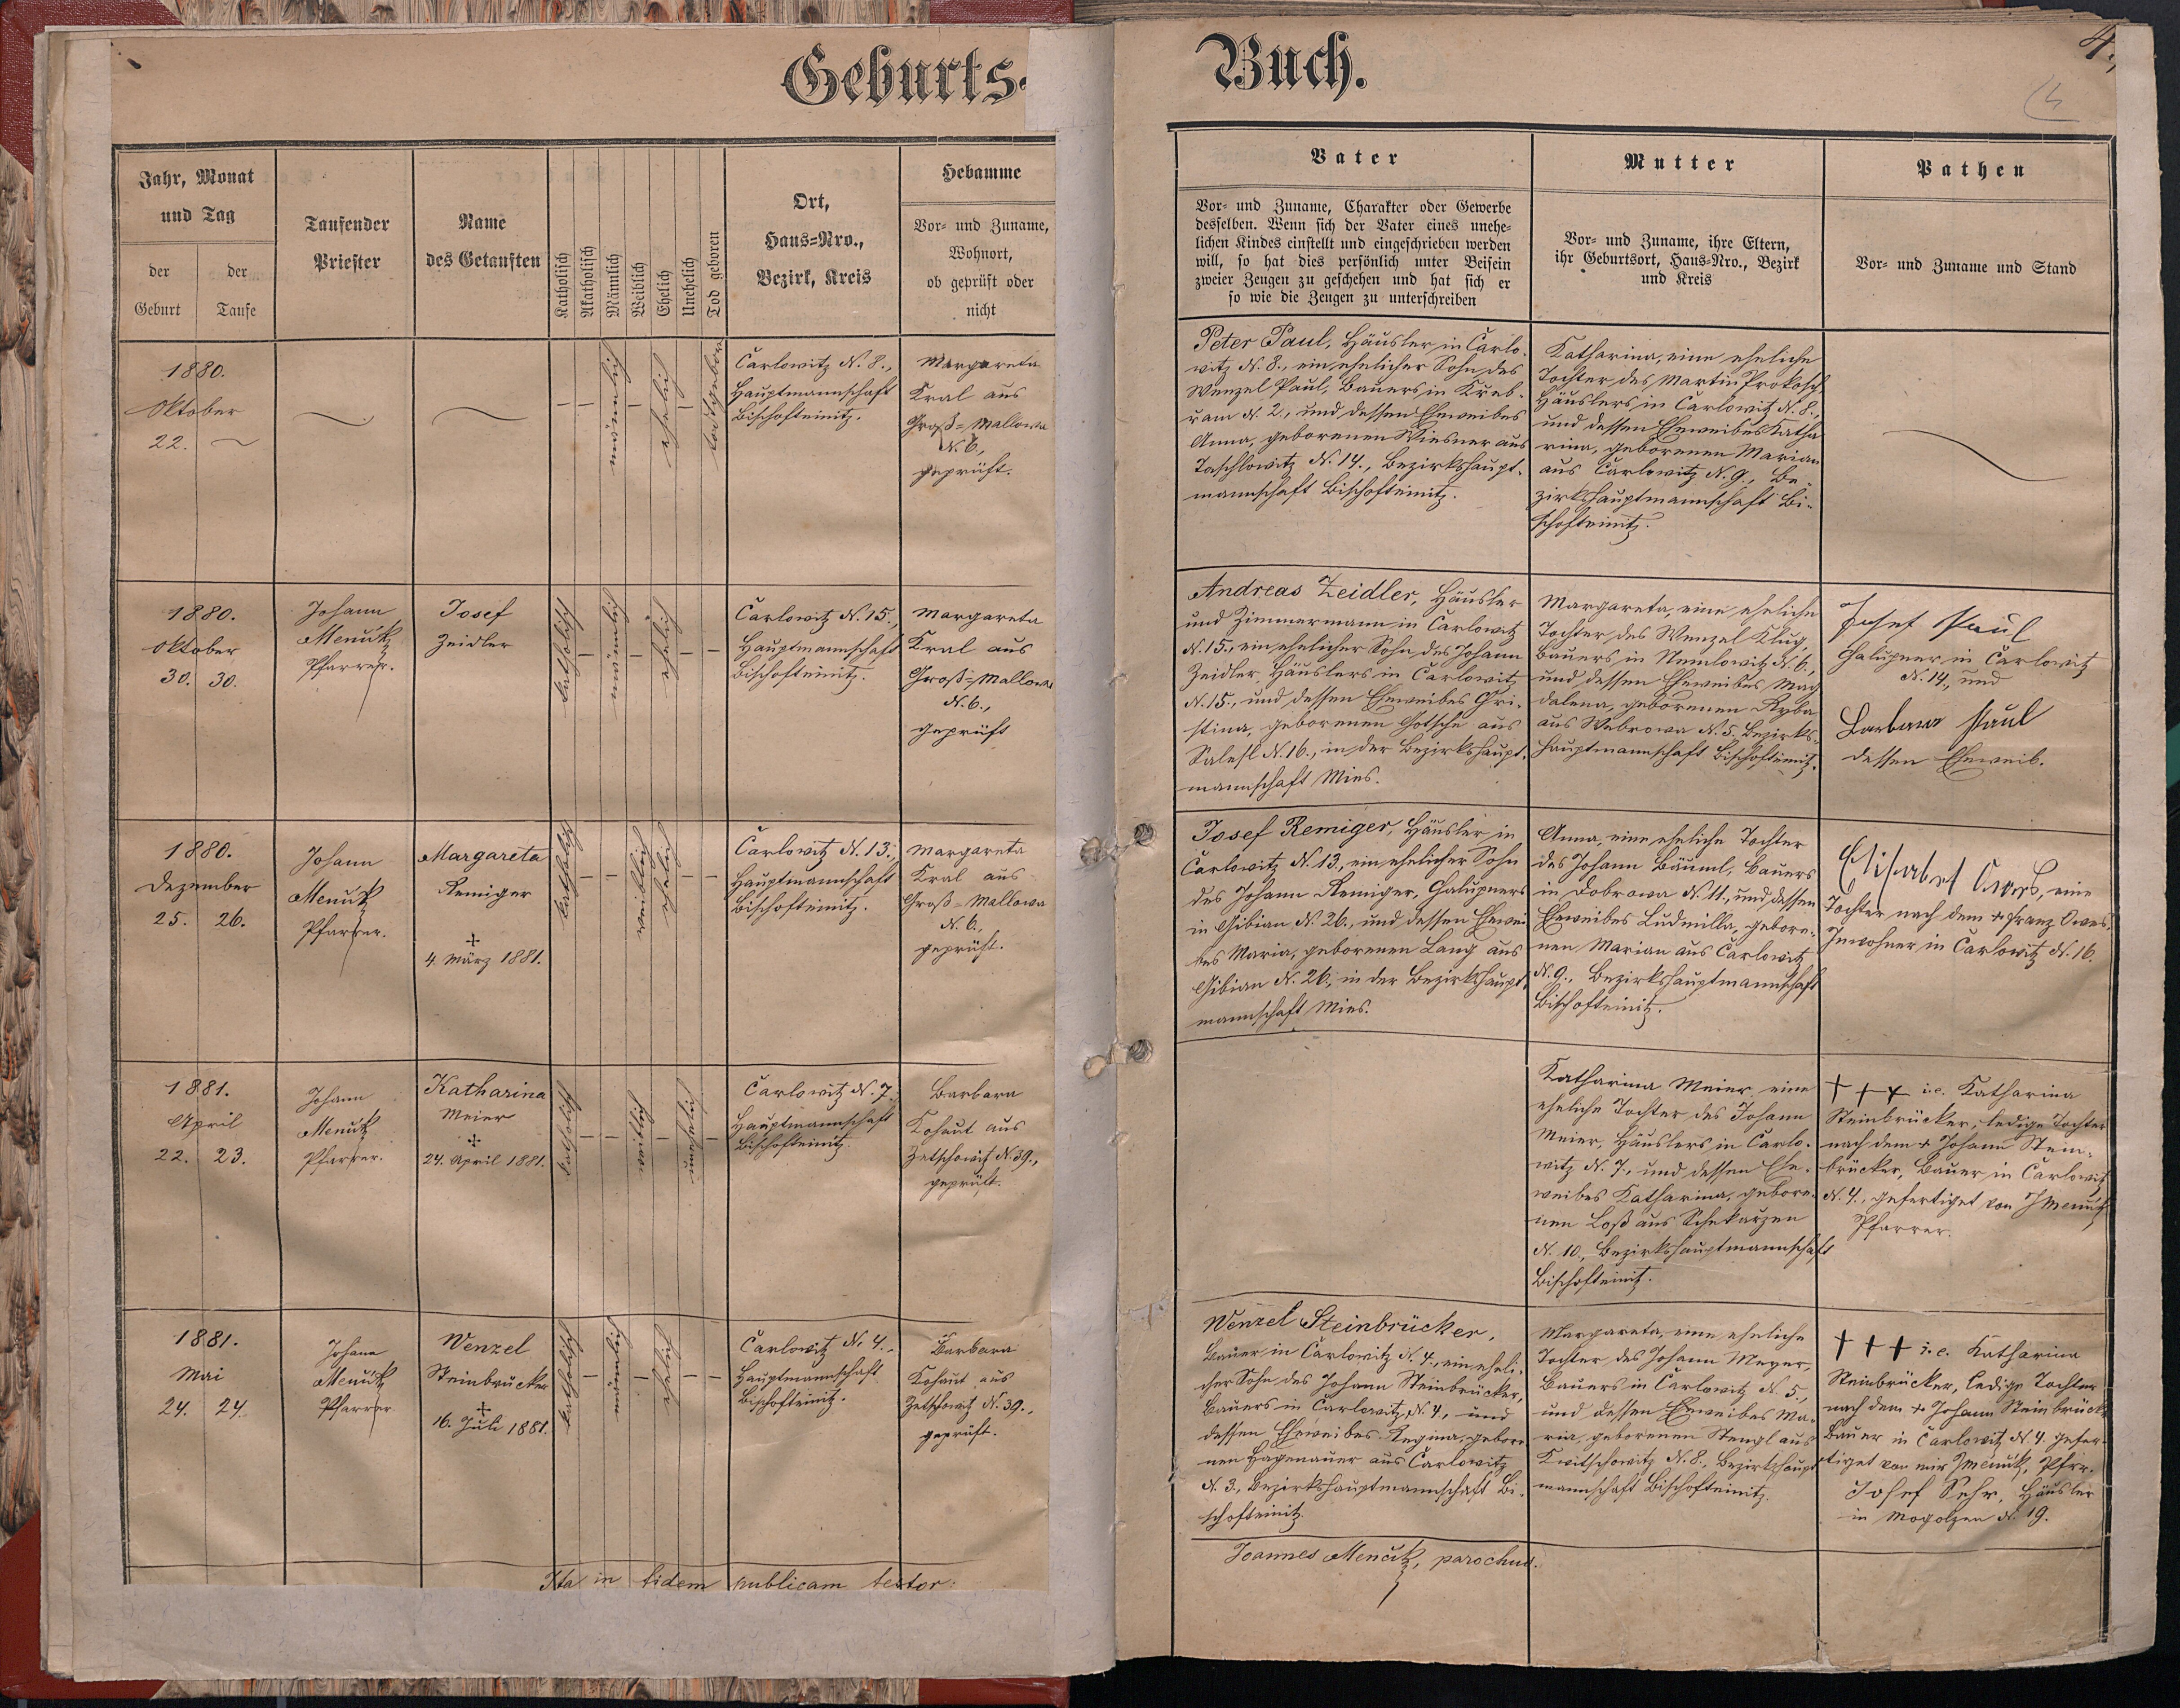 Geburts-
Buch.
4.,
Jahr, Monat
und Tag
der
Geburt
der
Taufe
Taufender
Priester
Name
des Getauften
Katholisch
Akatholisch
Männlich
Weiblich
Ehelich
Unehelich
Tod geboren
Ort,
Haus-Nro.,
Bezirk, Kreis
Hebamme
Vor- und Zuname,
Wohnort,
ob geprüft oder
nicht
Vater
Vor- und Zuname, Charakter oder Gewerbe
desselben. Wenn sich der Vater eines unehe-
lichen Kindes einstellt und eingeschrieben werden
will, so hat dies persönlich unter Beisein
zweier Zeugen zu geschehen und hat sich er
so wie die Zeugen zu unterschreiben
Mutter
Vor- und Zuname, ihre Eltern,
ihr Geburtsort, Haus-Nro., Bezirk
und Kreis
Pathen
Vor- und Zuname und Stand
1880.
Oktober
22.
männlich
ehelich
todtgebor
Carlowitz N. 8.,
Hauptmannschaft
Bischofteinitz.
Margareta
Kral aus
Groß-Mallowa
N. 6.,
geprüft.
Peter Paul, Häusler in Carlo-
witz N. 8., ein ehelicher Sohn des
Wenzel Paul, Bauers in Kreb-
uam N. 2., und dessen Eheweibes
Anna, geborenen Wiesner aus
Taschlowitz N. 14., Bezirkshaupt-
mannschaft Bischofteinitz.
Katharina, eine eheliche
Tochter des Martin Prokosch,
Häuslers in Carlowitz N. 8.,
und dessen Eheweibes Katha
rina, geborenen Marian
aus Carlowitz N. 9., Be-
zirkshauptmannschaft Bi-
schofteinitz.
1880.
Oktober
30. 30.
Johann
Menčik
Pfarrer.
Josef
Zeidler
katholisch
männlich
ehelich
Carlowitz N. 15.,
Hauptmannschaft
Bischofteinitz.
Margareta
Kral aus
Groß-Mallowa
N. 6.,
geprüft
Andreas Zeidler, Häusler
und Zimmermann in Carlowitz
N. 15., ein ehelicher Sohn des Johann
Zeidler, Häuslers in Carlowitz
N. 15., und dessen Eheweibes Chri-
stina, geborenen Gotsche aus
Salesl N. 16., in der Bezirkshaupt-
mannschaft Mies.
Margareta, eine eheliche
Tochter des Wenzel Klug,
Bauers in Nemlowitz N. 6.,
und dessen Eheweibes Mag
dalena, geborenen Ryba
aus Webrowa N. 5. Bezirks-
hauptmannschaft Bischofteinitz.
Josef Paul
Chalupner in Carlowitz
N. 14., und
Barbara Paul
dessen Eheweib.
1880.
Dezember
25. 26.
Johann
Menčik
Pfarrer.
Margareta
Remiger
+
4. März 1881.
katholisch
weiblich
ehelich
Carlowitz N. 13.,
Hauptmannschaft
Bischofteinitz.
Margareta
Kral aus
Groß-Mallowa
N. 6.,
geprüft.
Josef Remiger, Häusler in
Carlowitz N. 13., ein ehelicher Sohn
des Johann Remiger, Chalupners
in Gibian N. 26., und dessen Ehewei
bes Maria, geborenen Lang aus
Gibian N. 26., in der Bezirkshaupt-
mannschaft Mies.
Anna, eine eheliche Tochter
des Johann Bäuml, Bauers
in Dobrowa N. 11., und dessen
Eheweibes Ludmilla, gebore-
nen Marian aus Carlowitz
N. 9., Bezirkshauptmannschaft
Bischofteinitz.
Elisabet Owes, eine
Tochter nach dem + Franz Owes,
Inwohner in Carlowitz N. 16.
1881.
April
22. 23.
Johann
Menčik
Pfarrer.
Katharina
Meier
+
24. April 1881.
katholisch
weiblich
unehelich
Carlowitz N. 7.,
Hauptmannschaft
Bischofteinitz
Barbara
Kohaut aus
Zetschowitz N. 39.,
geprüft.
Katharina Meier, eine
eheliche Tochter des Johann
Meier, Häuslers in Carlo-
witz N. 7., und dessen Ehe-
weibes Katharina, gebore-
nen Loß aus Schekarzen
N. 10., Bezirkshauptmannschaft
Bischofteinitz.
+++ i.e. Katharina
Steinbrücker, ledige Tochter
nach dem + Johann Stein-
brücker, Bauer in Carlowitz
N. 4., gefertiget von J Menčik
Pfarrer.
1881.
Mai
24. 24.
Johann
Menčik
Pfarrer
Wenzel
Steinbrücker
+
16. Juli 1881.
katholisch
männlich
ehelich
Carlowitz N. 4.,
Hauptmannschaft
Bischofteinitz.
Barbara
Kohaut aus
Zetschowitz N. 39.,
geprüft.
Wenzel Steinbrücker,
Bauer in Carlowitz N. 4., ein eheli-
cher Sohn des Johann Steinbrücker,
Bauers in Carlowitz N. 4., und
dessen Eheweibes Regina, gebore
nen Hagenauer aus Carlowitz
N. 3., Bezirkshauptmannschaft Bi-
schofteinitz.
Margareta, eine eheliche
Tochter des Johann Meyer,
Bauers in Carlowitz N. 5.,
und dessen Eheweibes Ma-
ria, geborenen Stengl aus
Kwitschowitz N. 8., Bezirkshaupt
mannschaft Bischofteinitz.
+++ i.e. Katharina
Steinbrücker, ledige Tochter
nach dem + Johann Steinbrück
Bauer in Carlowitz N. 4. gefer-
tiget von mir J Menčik, Pfrr.
Josef Sehr, Häusler
in Mogolzen N. 19.
Ita in fidem publicam testor:
Joannes Menčik, parochus.